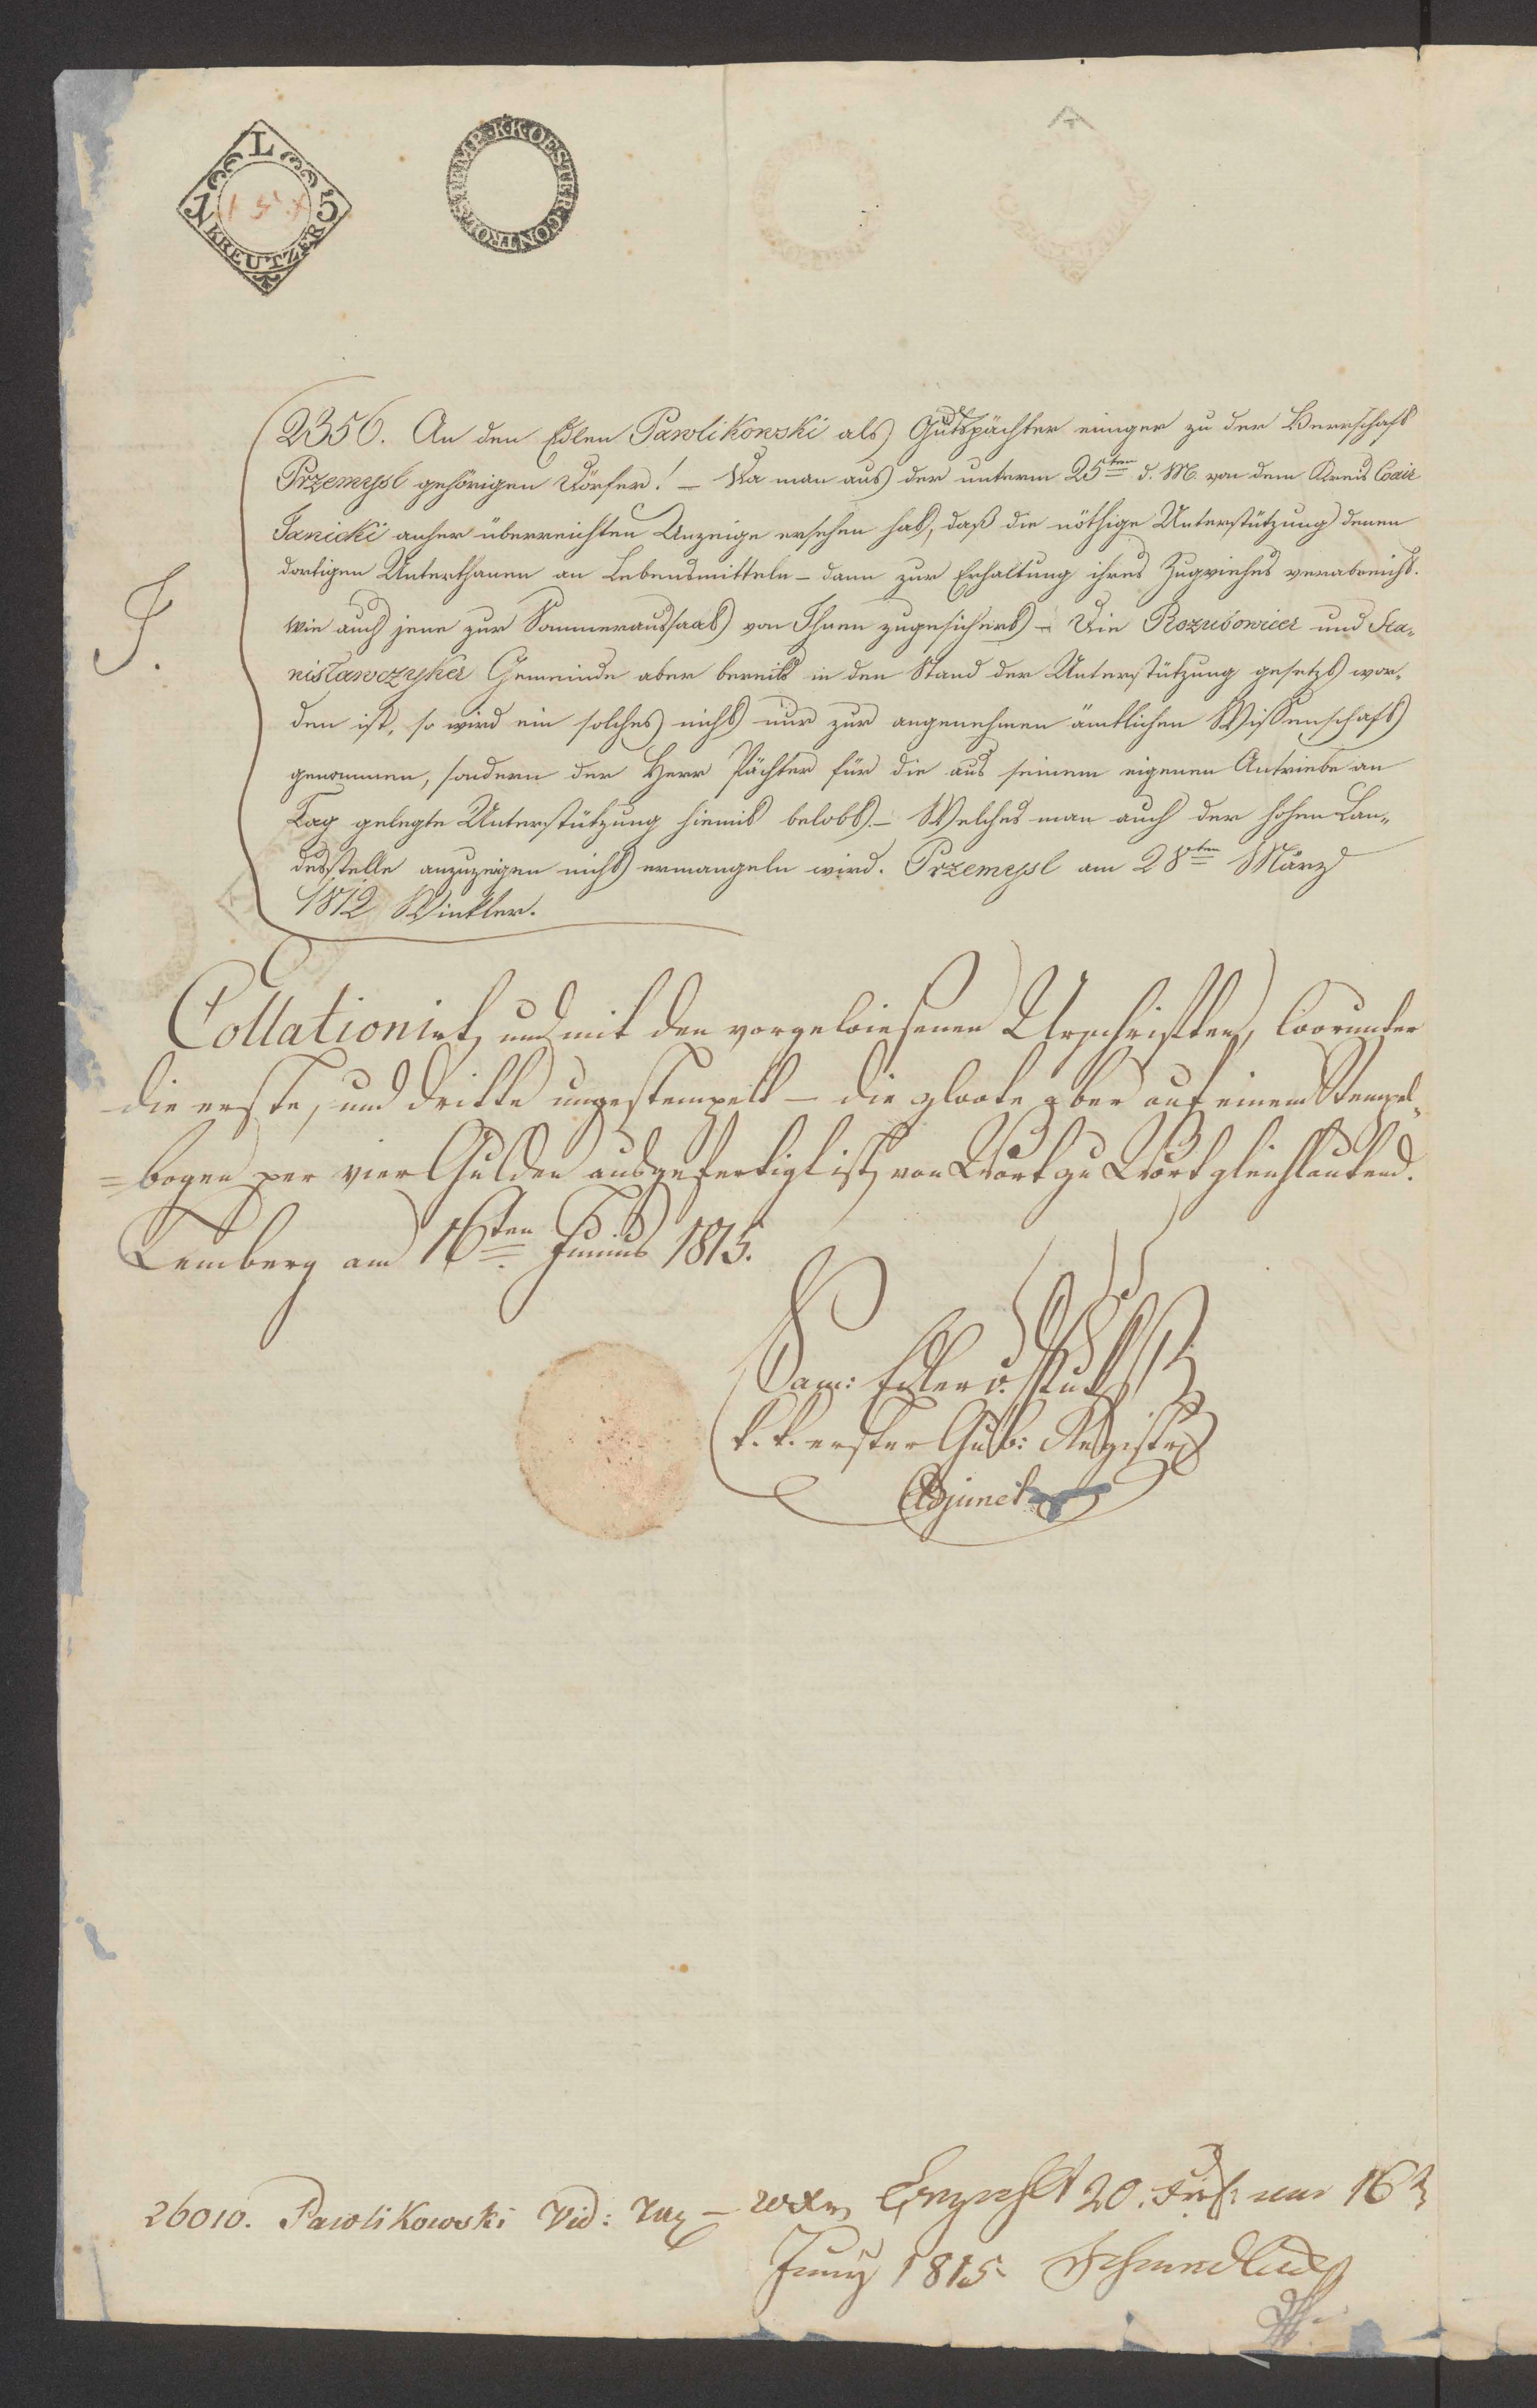 L
1 5
KREUTZER
K.K.OESTER.CONTROLSTEMP.
2356. An den Edlen Pawlikowski als Gutspächter einiger zu der Herrschaft
Przemysl gehörigen Dörfer! – Da man aus der unterm 25ten d. M. von dem Kreis Coäir
Janicki anher überreichten Anzeige ersehen hat, daß die nöthige Unterstützung denen
dortigen Unterthanen an Lebensmitteln – dann zur Erhaltung ihres Zugviehes verabreicht.
wie auch jene zur Sommeraussaat von Ihnen zugesichert – Die Rozubowicer und Sta„
nisławczyker Gemeinde aber bereits in den Stand der Unterstützung gesetzt wor„
den ist, so wird ein solches nicht nur zur angenehmen ämtlichen Wissenschaft
genommen, sondern der Herr Pächter für die aus seinem eigenen Antriebe an
Tag gelegte Unterstützung hiemit belobt. – Welches man auch der hohen Lan„
desstelle anzuzeigen nicht ermangeln wird. Przemysl am 28ten März
1812 Winkler.
J.
Collationirt, und mit den vorgewiesenen Urschriften, worunter
die erste, und dritte ungestempelt – die zwote aber auf einem Stempel„
=bogen per vier Gulden ausgefertigt ist, von Wort zu Wort gleichlautend.
Lemberg am 16ten Junius 1815.
Sam: Edler v.
k. k. erster Gub: Registrs
Adjunct
26010. Pawlikowski Vid: Tax – 20 xr
Juny 1815.